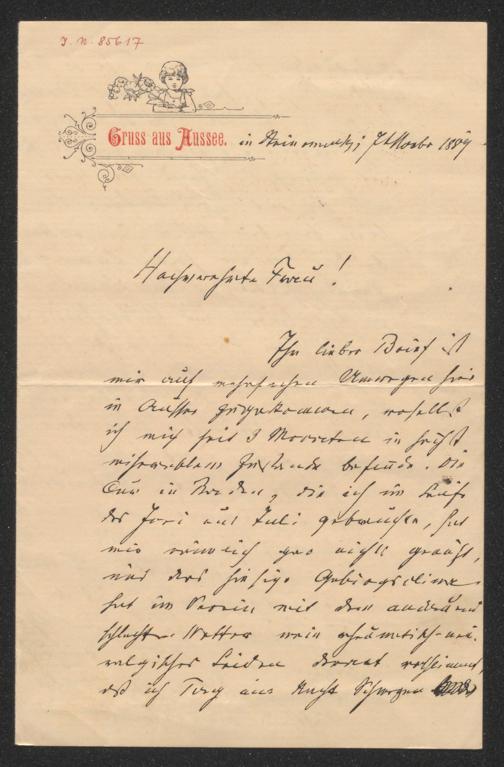 I. N. 85617
Gruss aus Aussee. in Steiermark, 7. Oktober 1889
Hochverehrte Frau!
Ihr lieber Brief ist
mir auf mehrfachen Umwegen hier
in Aussee zugekommen, woselbst
ich mich seit 3 Monaten in höchst
miserablem Zustande befinde. Die
Cur in Baden, die ich im Laufe
des Juni und Juli gebrauchte, hat
mir nämlich gar nichts genützt,
und das hiesige Gebirgsclima
hat im Verein mit dem andauernd
schlechten Wetter mein rheumatisch-neu-
ralgisches Leiden derart verschlimmert,
daß ich Tag und Nacht Schmerzen